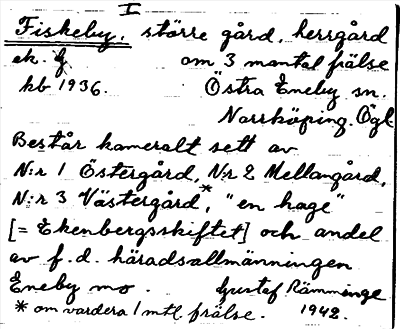 I
Fiskeby, större gård, herrgård
ek. f. om 3 mantal frälse
kb 1936. Östra Eneby sn.
Norrköping. Ögl
Består kameralt sett av
N:r 1 Östergård, N:r 2 Mellangård,
N:r 3 Västergård,* "en hage"
[= Ekenbergsskiftet] och andel
av f.d. häradsallmänningen
Eneby mo. Gustaf Rämminge
* om vardera 1 mtl frälse. 1942.